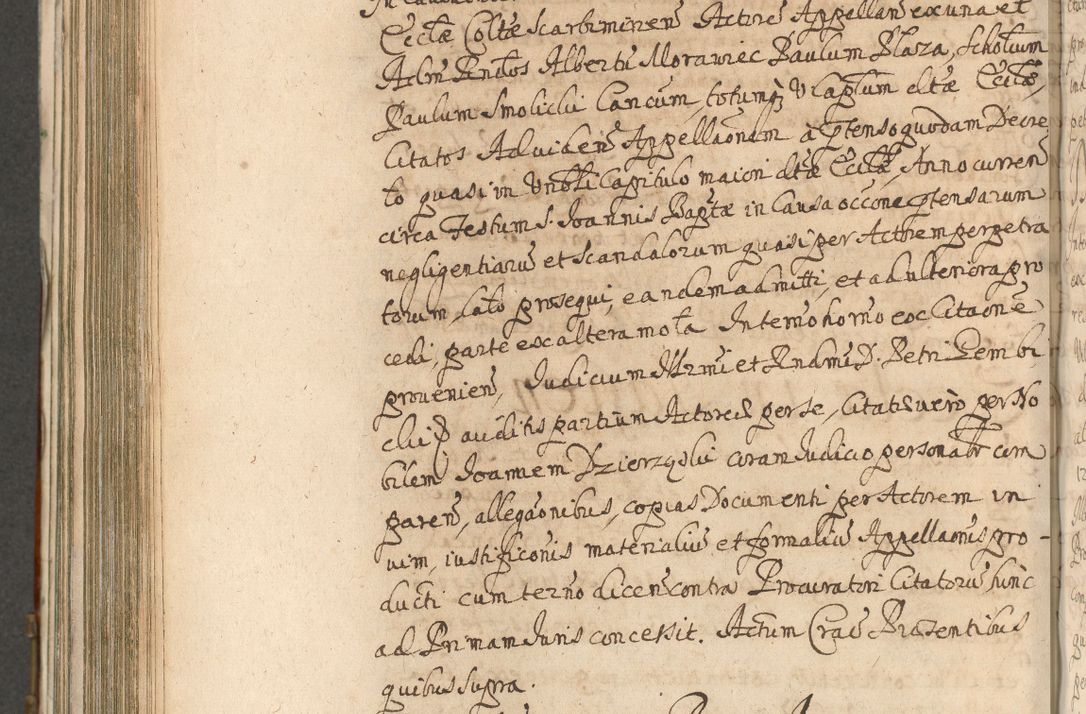 Ecclæ Coltæ Scarbimiren Actore Appellan ex una et
Adm Rndos Albertu Morawiec Paulum Plaza, Scholium
Paulum Smolicki Cancum, totumq Vcaptum dtæ Ecclæ,
Citatos Ad viden Appellaonem à ptenso quodam Decre
to quasi in Vnbli Capitulo maiori dtæ Ecclæ, Anno curren
circa Festum S. Joannis Baptæ in Causa occone ptensarum
negligentiaru et Scandalorum quasi per Actorem perpetra
torum, lato prosequi, eandem admitti, et ad ulteriora pro
cedi, parte ex altera mota In termo horno ex Citaone
provenien, Judicium Illrmi et Rndmi D. Petri Gembi
cki auditis partium Actoreis per se, Citatis vero per No
bilem Joannem Dzierzgski coram Judicio personalr com
paren, allegaonibus, copias Documenti per Actorem in
vim, iustificonis materialiu et formaliu Appellaonis pro-
ducti cum termo dicen contra Procuratori Citatoru hinc
ad Primam Juris concessit. Actum Crac Præsentibus
quibus supra.